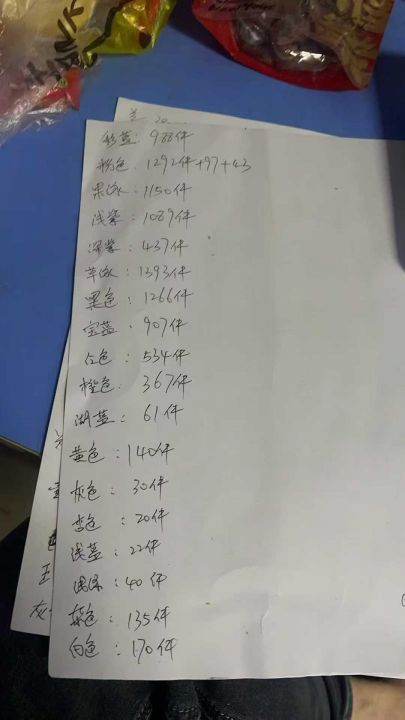 彩蓝：988件
粉色：1292件+97+43
果绿：1150件
浅紫：1089件
深紫：437件
草绿：1393件
黑色：1266件
宝蓝：907件
红色：534件
橙色：367件
湖蓝：61件
黄色：140件
灰色：30件
杏色：20件
浅蓝：22件
40件
棕色：135件
白色：170件